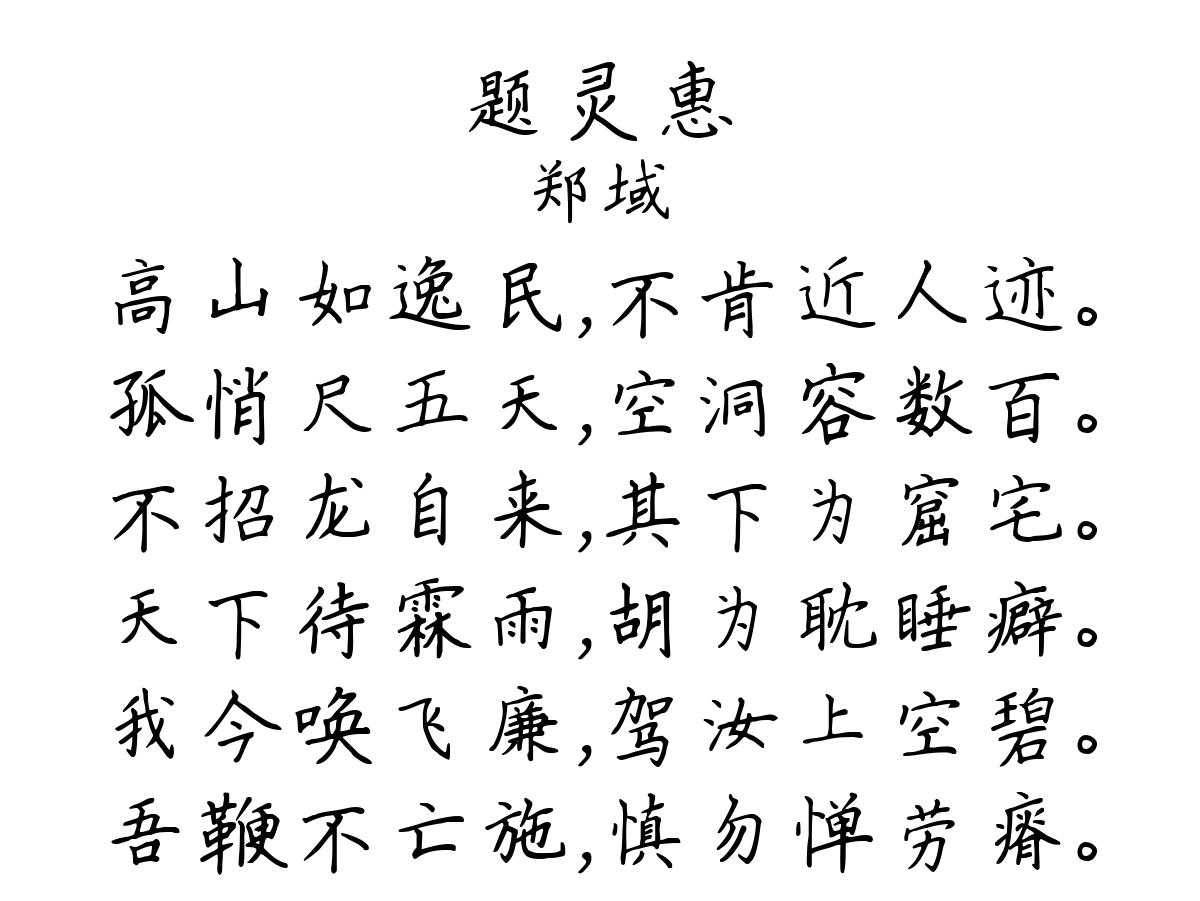 题灵惠
郑域
高山如逸民,不肯近人迹。
孤悄尺五天,空洞容数百。
不招龙自来,其下为窟宅。
天下待霖雨,胡为耽睡癖。
我今唤飞廉,驾汝上空碧。
吾鞭不亡施,慎勿惮劳瘠。